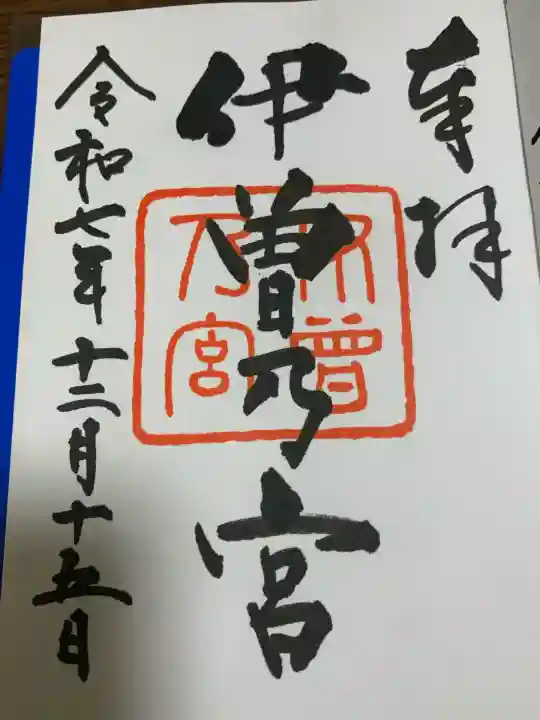 奉拝
伊曽乃宮
曽乃宮
令和七年十二月十五日